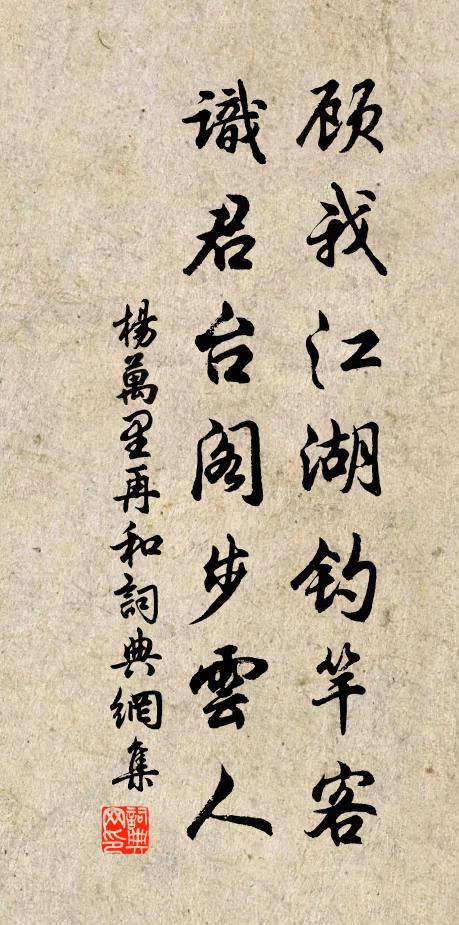 顾我江湖钓竿客
識君台阁步雲人
楊萬里再和詞典網集
詞典网印